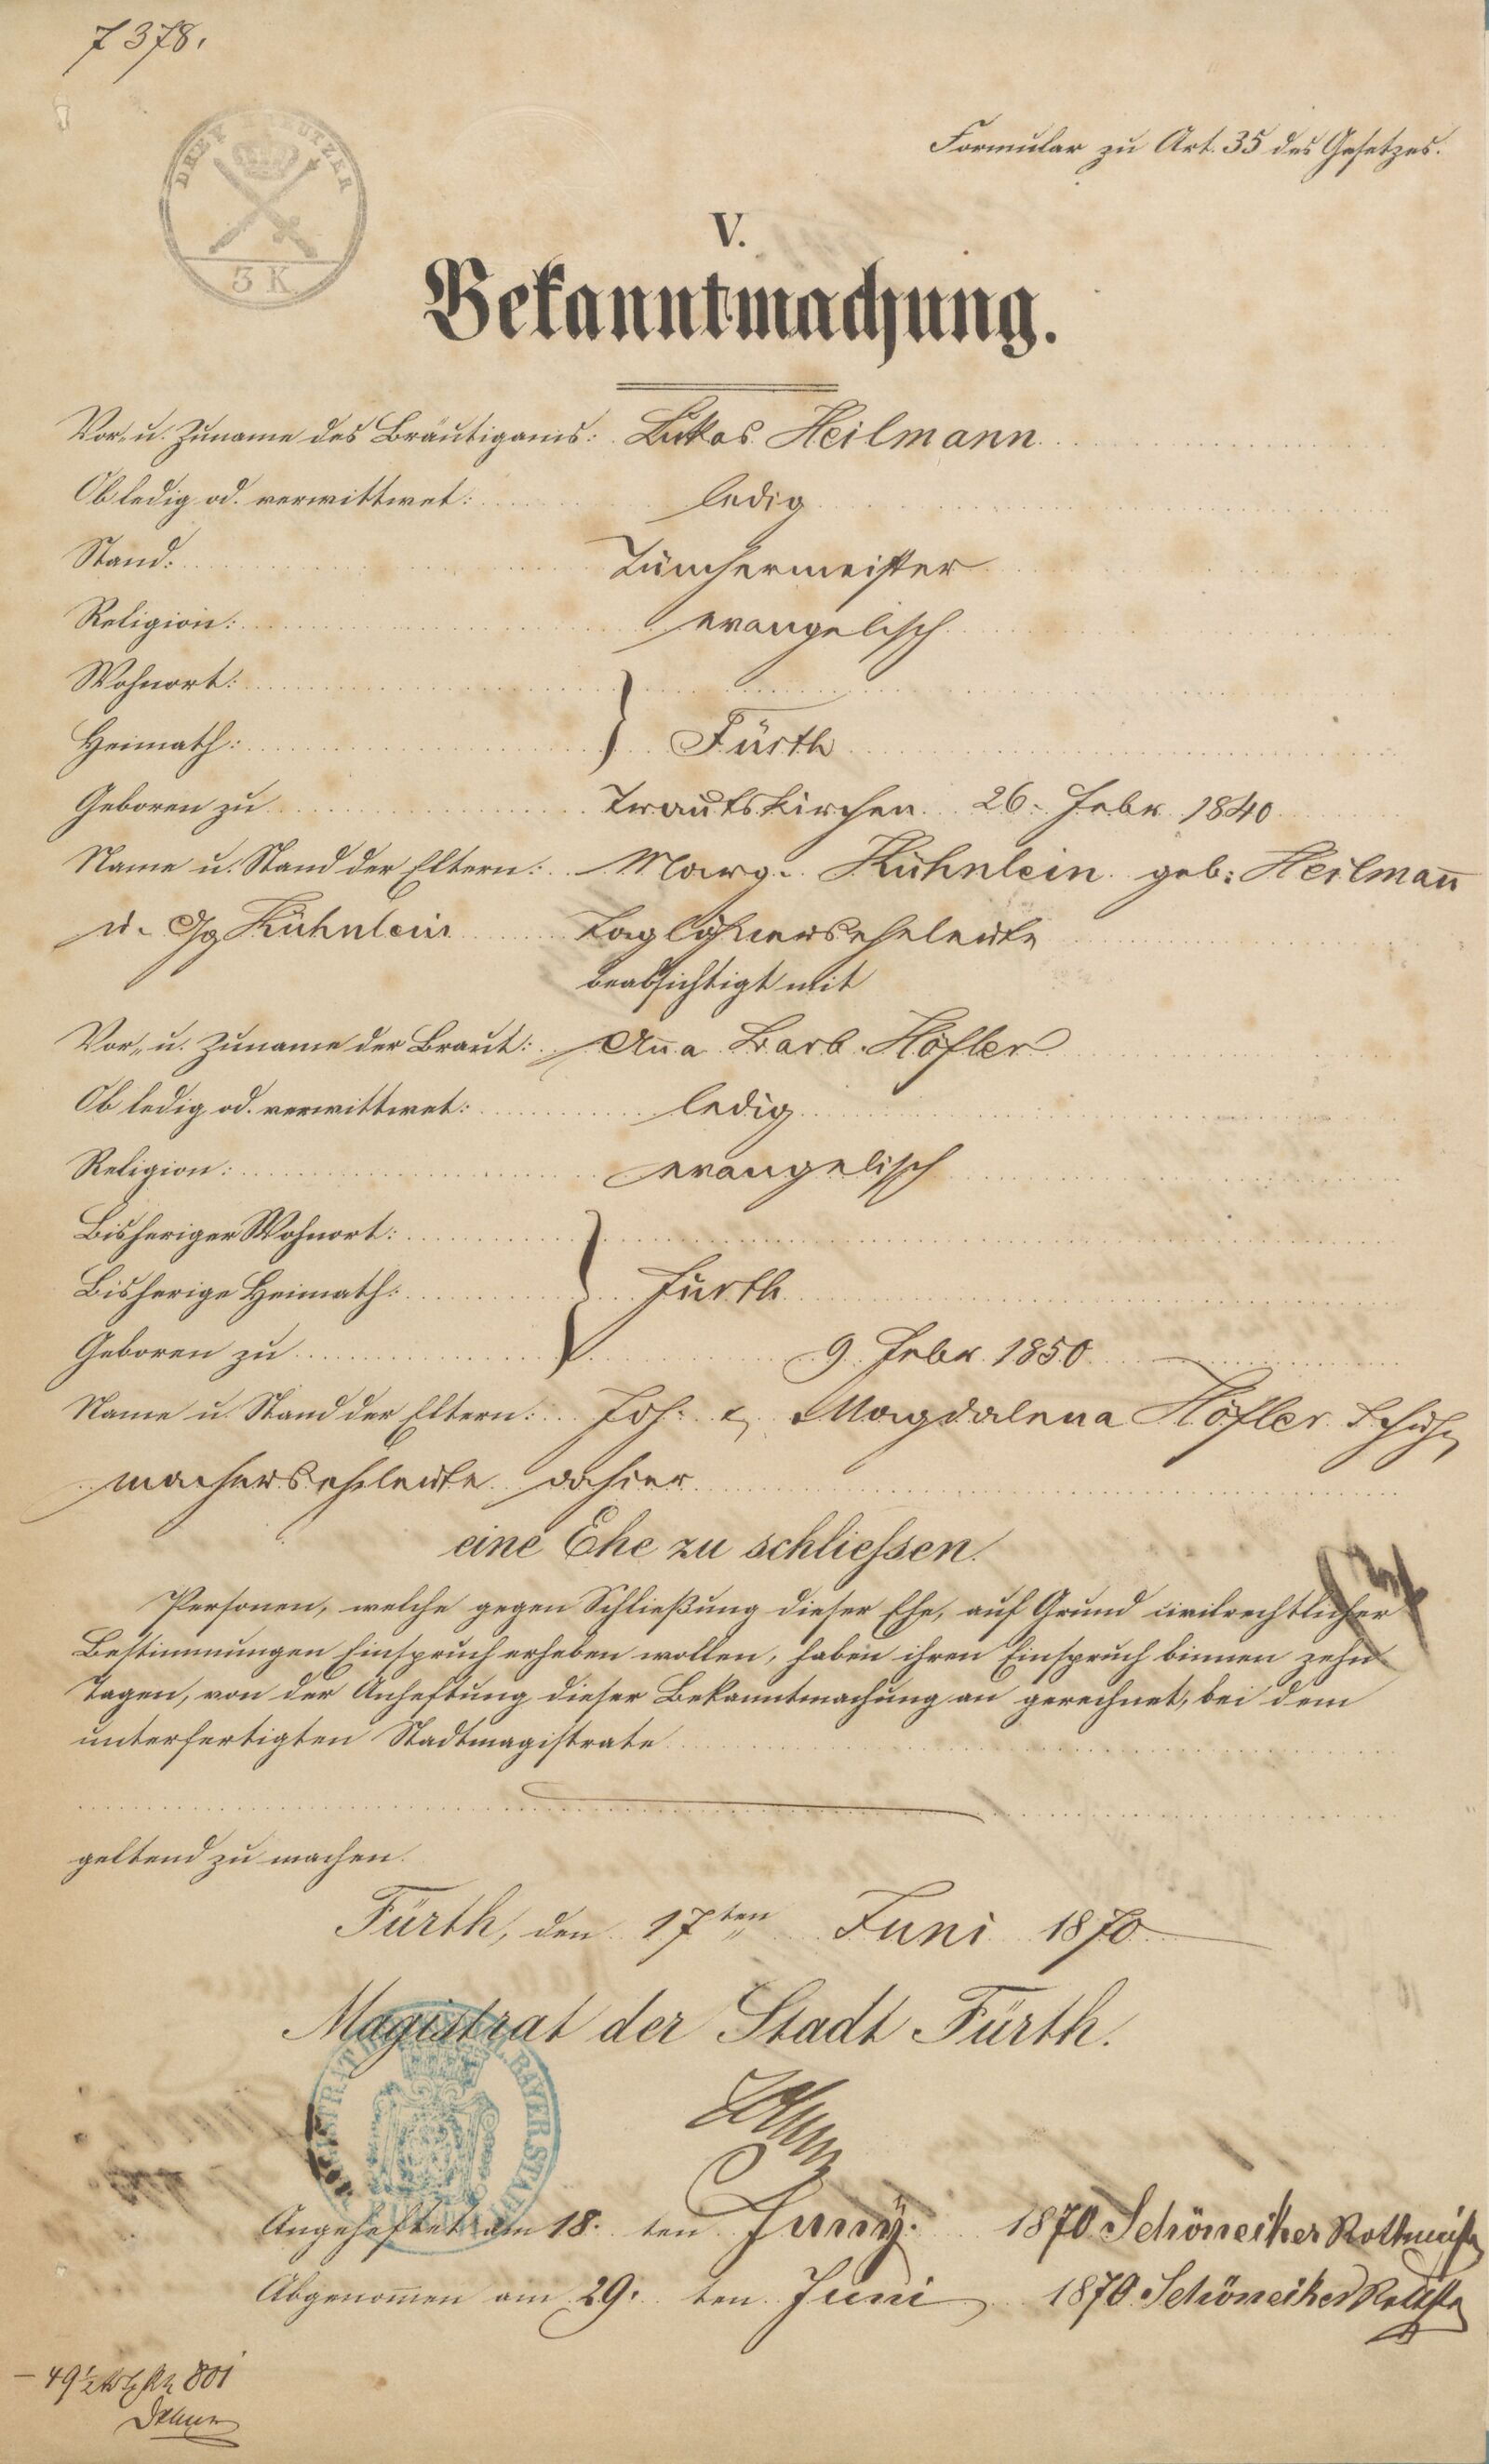 7378.
DREY KREUTZER
3 K
Formular zu Art. 35 des Gesetzes.
V.
Bekanntmachung.
Vor- u. Zuname des Bräutigams: Lukas Heilmann
Ob ledig od. verwittwet: ledig
Stand: Tünchermeister
Religion: evangelisch
Wohnort:
Heimath: Fürth
Geboren zu Trautskirchen 26. Febr. 1840
Name u. Stand der Eltern: Marg. Kühnlein geb: Heilmañ
u. Gg Kühnlein Taglöhnerseheleute
beabsichtigt mit
Vor- u. Zuname der Braut: Aña Barb. Höfler
Ob ledig od. verwittwet: ledig
Religion: evangelisch
Bisheriger Wohnort:
Bisherige Heimath: Fürth
Geboren zu 9. Febr. 1850
Name u. Stand der Eltern: Joh. & Magdalena Höfler Schuh-
macherseheleute dahier
eine Ehe zu schliessen.
Personen, welche gegen Schließung dieser Ehe, auf Grund civilrechtlicher
Bestimmungen Einspruch erheben wollen, haben ihren Einspruch binnen zehn
Tagen, von der Anheftung dieser Bekanntmachung an gerechnet, bei dem
unterfertigten Stadtmagistrate
geltend zu machen.
Fürth, den 17ten Juni 1870
Magistrat der Stadt Fürth.
Angeheftet am 18. ten Juny. 1870 Schöneiker Rottmeister
Abgenom̄en am 29. ten Juni 1870 Schöneiker